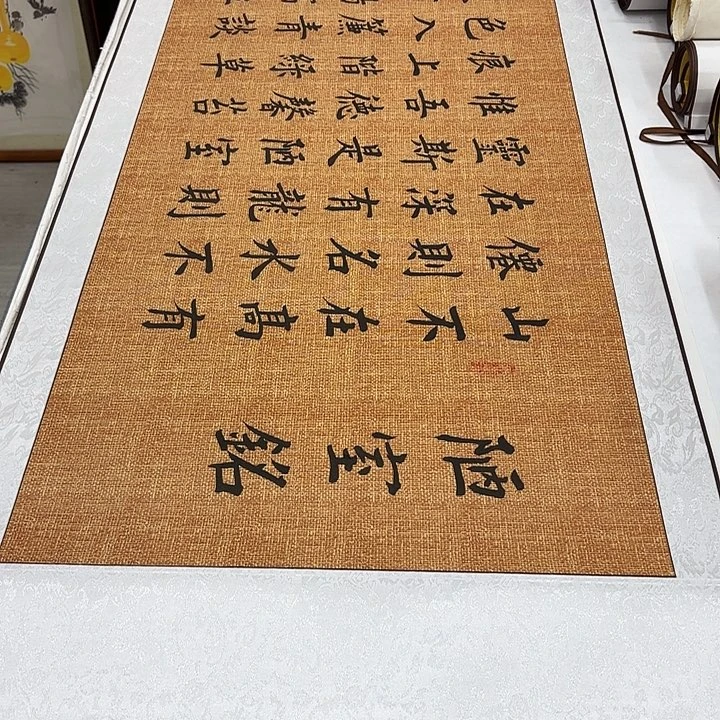 陋室銘
山不在高有
僊則名水不
在深有龍則
靈斯是陋室
惟吾德馨苔
痕上階綠草
色入簾青談